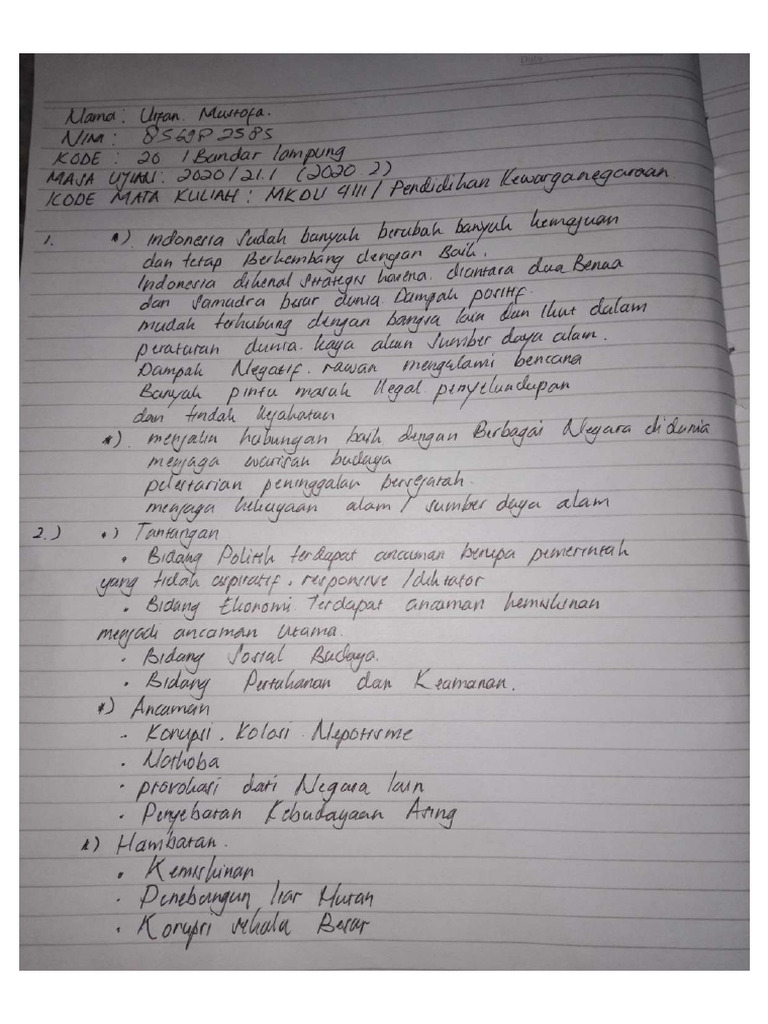 Date
Nama : Urfan Mustofa.
NIM : 856982585
KODE : 20 / Bandar lampung
MASA UJIAN : 2020/21.1 (2020.2)
KODE MATA KULIAH : MKDU 4111 / Pendidikan Kewarganegaraan
1. *) Indonesia sudah banyak berubah banyak kemajuan
dan tetap Berkembang dengan Baik.
Indonesia dikenal strategis karena diantara dua Benua
dan Samudra besar dunia. Dampak positif.
mudah terhubung dengan bangsa lain dan Ikut dalam
peraturan dunia. kaya akan sumber daya alam.
Dampak Negatif. rawan mengalami bencana
Banyak pintu masuk Ilegal penyelundupan
dan tindak kejahatan
*) menjalin hubungan baik dengan Berbagai Negara di dunia
menjaga warisan budaya
pelestarian peninggalan bersejarah.
menjaga kekayaan alam / sumber daya alam
2.) *) Tantangan
• Bidang Politik terdapat ancaman berupa pemerintah
yang tidak aspiratif, responsive / diktator
• Bidang Ekonomi Terdapat ancaman kemiskinan
menjadi ancaman Utama.
• Bidang Sosial Budaya.
• Bidang Pertahanan dan Keamanan.
*) Ancaman
- Korupsi, Kolosi Nepotisme
• Narkoba
• provokasi dari Negara lain
• Penyebaran Kebudayaan Asing
*) Hambatan.
• Kemiskinan
• Penebangun liar Hutan
• Korupsi skala Besar